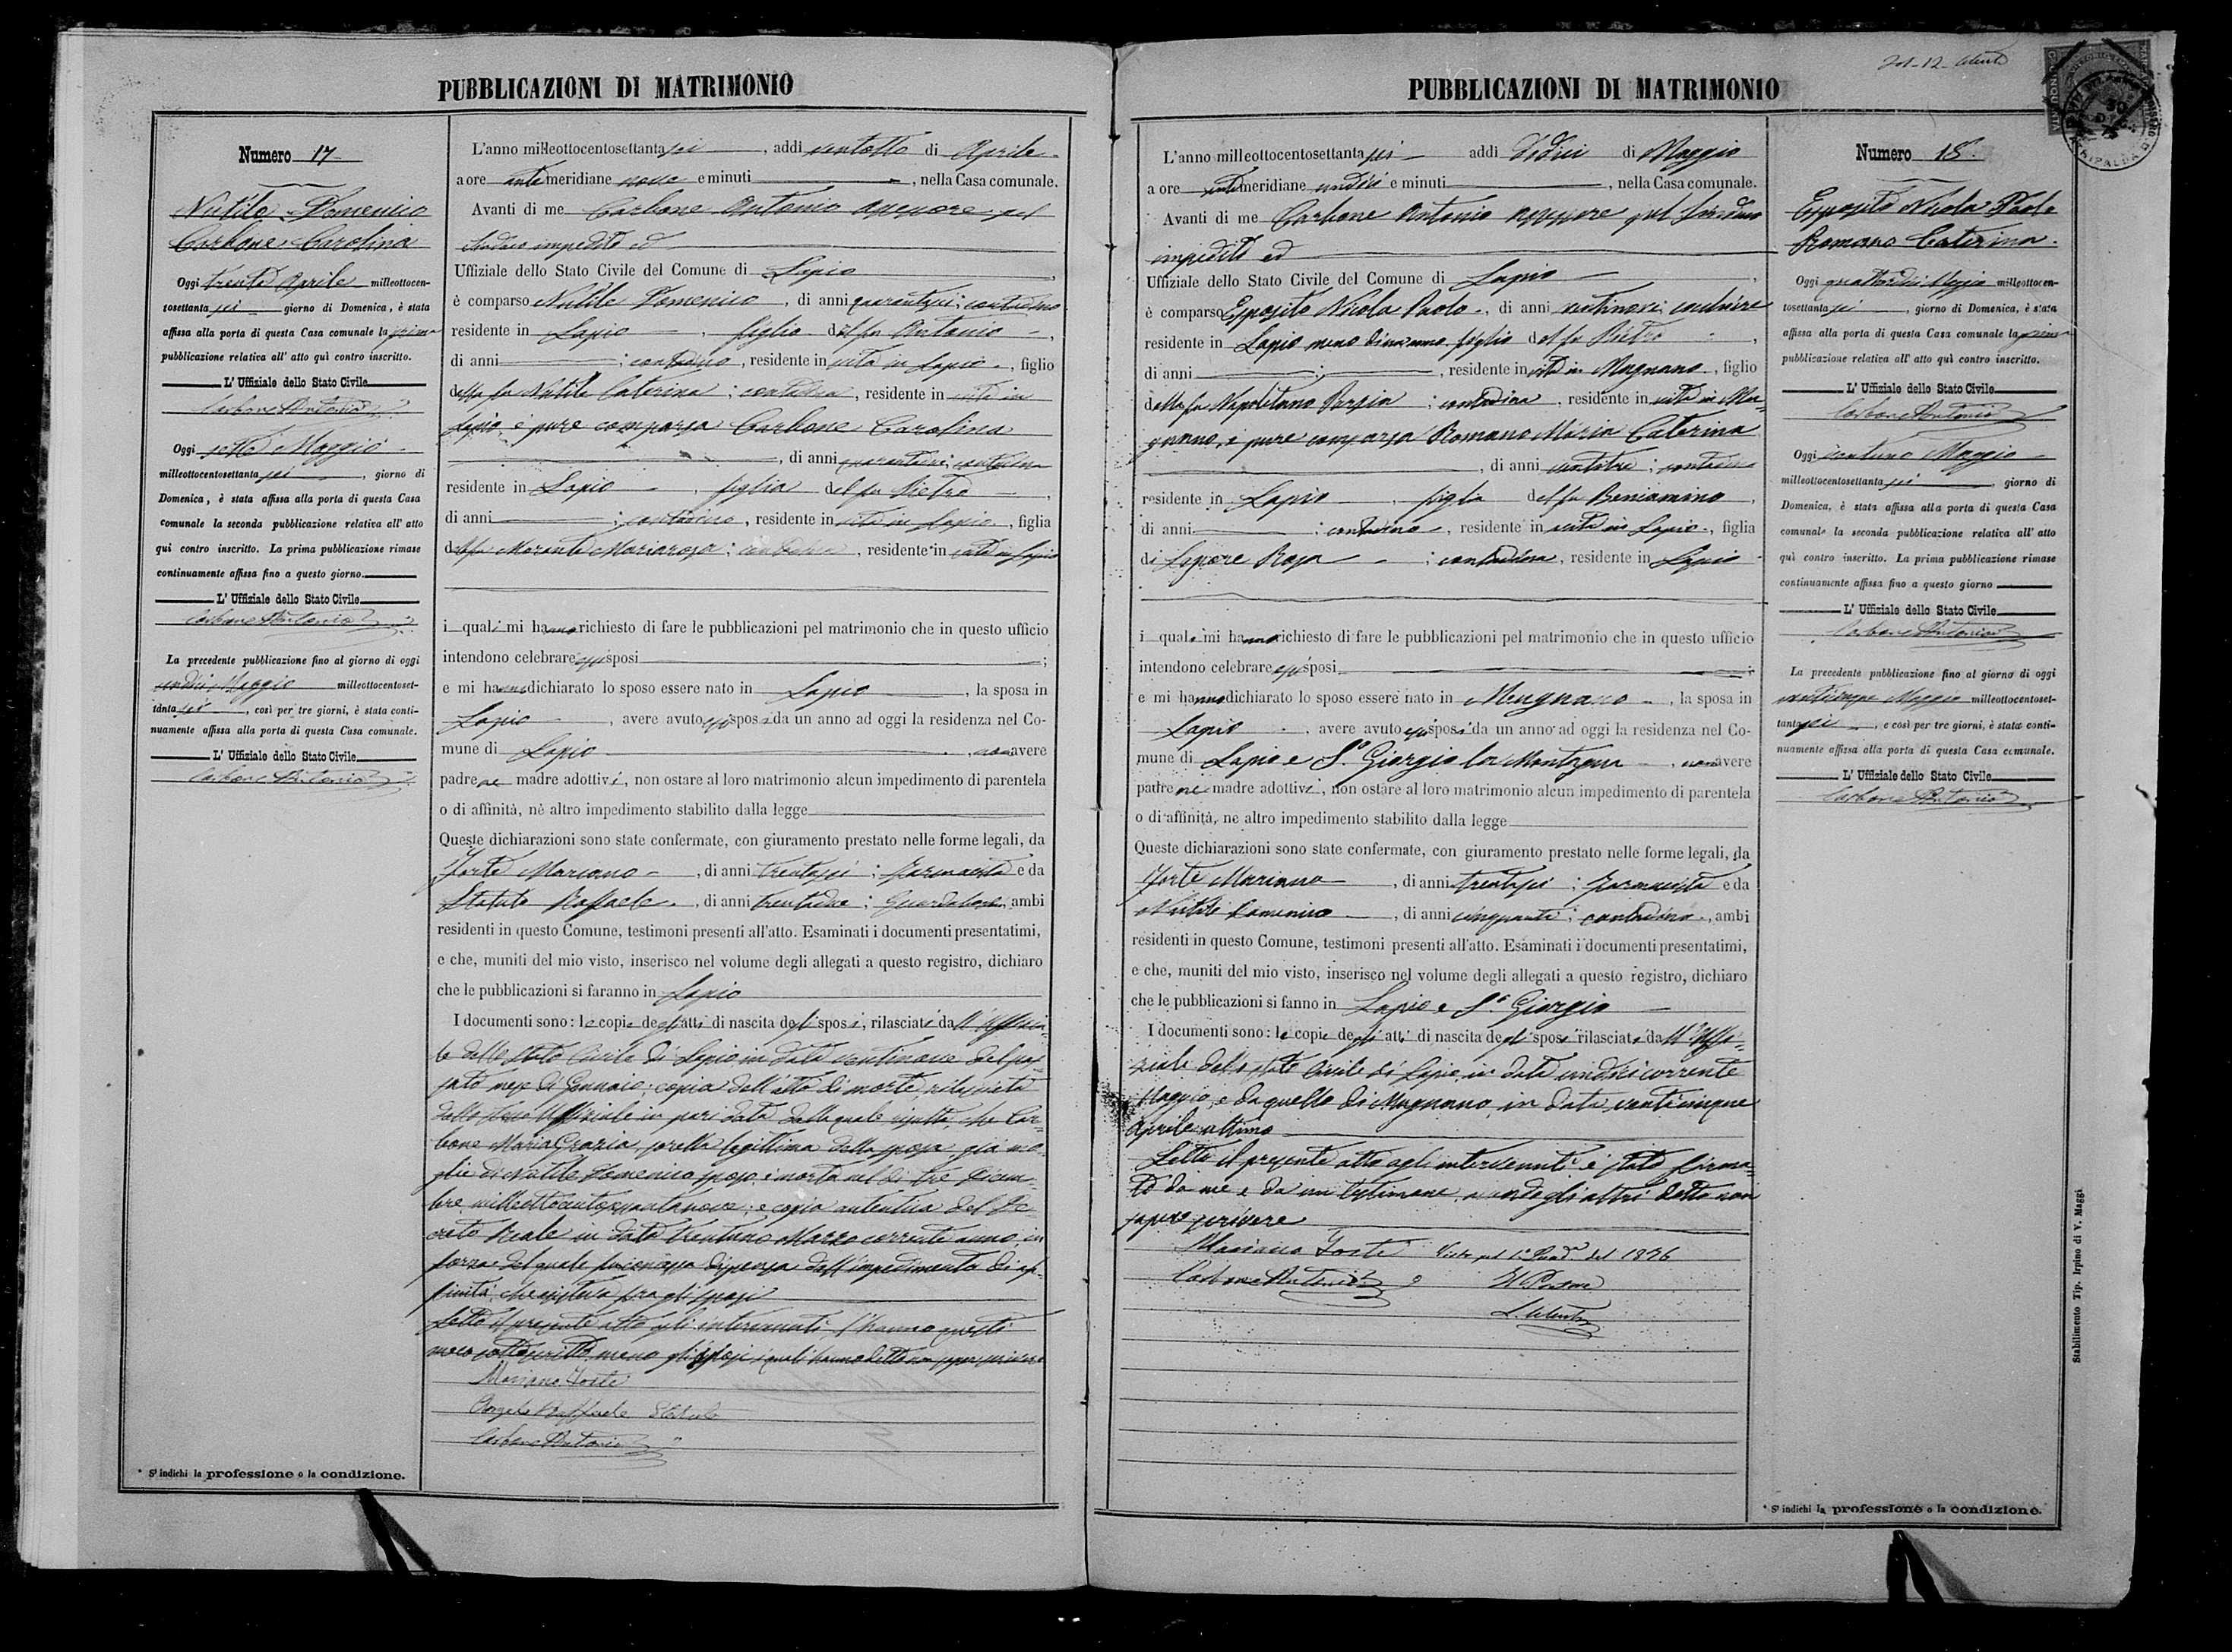 PUBBLICAZIONI DI MATRIMONIO
Numero 17
Nutile Domenico
Carbone Carolina
Oggi trenta Aprile milleottocen-
tosettanta sei giorno di Domenica, è stata
affissa alla porta di questa Casa comunale la prima
pubblicazione relativa all' atto quì contro inscritto.
L' Uffiziale dello Stato Civile
Carbone Antonio
Oggi sette Maggio
milleottocentosettanta sei, giorno di
Domenica, è stata affissa alla porta di questa Casa
comunale la seconda pubblicazione relativa all' atto
qui contro inscritto. La prima pubblicazione rimase
continuamente affissa fino a questo giorno.
L' Uffiziale dello Stato Civile
Carbone Antonio
La precedente pubblicazione fino al giorno di oggi
undici Maggio milleottocentoset-
tanta sei, così per tre giorni, è stata conti-
nuamente affissa alla porta di questa Casa comunale.
L' Uffiziale dello Stato Civile
Carbone Antonio
* Si indichi la professione o la condizione.
L'anno milleottocentosettanta sei, addi ventotto di Aprile
a ore antemeridiane nove e minuti, nella Casa comunale.
Avanti di me Carbone Antonio Assessore pel
Sindaco impedito ed
Uffiziale dello Stato Civile del Comune di Lapio,
è comparso Nutile Domenico, di anni quarantasei; contadino
residente in Lapio, figlio del fu Antonio,
di anni ; contadino, residente in vita in Lapio, figlio
della fu Nutile Caterina; contadina, residente in vita in
Lapio, è pure comparsa Carbone Carolina
, di anni contadina
residente in Lapio, figlia del fu Pietro,
di anni ; contadino, residente in vita in Lapio, figlia
della fu Morante Mariarosa; contadina, residente in vita in Lapio
i quali mi hanno richiesto di fare le pubblicazioni pel matrimonio che in questo ufficio
intendono celebrare essi sposi;
e mi hanno dichiarato lo sposo essere nato in Lapio, la sposa in
Lapio, avere avuto essi sposi da un anno ad oggi la residenza nel Co-
mune di Lapio, non avere
padre ne madre adottivi, non ostare al loro matrimonio alcun impedimento di parentela
o di affinità, nè altro impedimento stabilito dalla legge
Queste dichiarazioni sono state confermate, con giuramento prestato nelle forme legali, da
Forte Mariano, di anni trentasei; farmacista e da
Statuto Raffaele, di anni trentadue; Guardaboschi, ambi
residenti in questo Comune, testimoni presenti all'atto. Esaminati i documenti presentatimi,
e che, muniti del mio visto, inserisco nel volume degli allegati a questo registro, dichiaro
che le pubblicazioni si faranno in Lapio
I documenti sono: le copie degli atti di nascita degli sposi, rilasciate dall'Uffizia-
le dello Stato Civile di Lapio in data ventinove del pas-
sato mese di Gennaio; copia dell'atto di morte rilasciata
dallo stesso Uffiziale in pari data dalla quale risulta, che Car-
bone Maria Grazia, sorella legittima della sposa, già mo-
glie di Nutile Domenico sposo, è morta nel dì tre Dicem-
bre milleottocentoquarantanove; e copia autentica del De-
creto Reale in data trentuno Marzo corrente anno, in
forza del quale fu concessa dispensa dall'impedimento di af-
finità, che esisteva fra gli sposi
Letto il presente atto agli intervenuti l'hanno questi
meco sottoscritto, meno gli sposi, i quali hanno detto non saper scrivere
Mariano Forte
Angelo Raffaele Statuto
Carbone Antonio
PUBBLICAZIONI DI MATRIMONIO
L'anno milleottocentosettanta sei addi dodici di Maggio
a ore antemeridiane undici e minuti, nella Casa comunale.
Avanti di me Carbone Antonio Assessore pel Sindaco
impedito ed
Uffiziale dello Stato Civile del Comune di Lapio,
è comparso Esposito Nicola Paolo, di anni ventinove;
residente in Lapio meno di un anno, figlio del fu Pietro,
di anni ; , residente in vita in Mugnano, figlio
della fu Napolitano ; contadina, residente in vita in Mu-
gnano, è pure comparsa Romano Maria Caterina
, di anni ventitre; contadina
residente in Lapio, figlia del fu Beniamino,
di anni ; contadino, residente in vita in Lapio, figlia
di Lepore Rosa ; contadina, residente in Lapio
i quali mi hanno richiesto di fare le pubblicazioni pel matrimonio che in questo ufficio
intendono celebrare essi sposi;
e mi hanno dichiarato lo sposo essere nato in Mugnano, la sposa in
Lapio, avere avuto essi sposi da un anno ad oggi la residenza nel Co-
mune di Lapio e S. Giorgio la Montagna, non avere
padre ne madre adottivi, non ostare al loro matrimonio alcun impedimento di parentela
o di affinità, ne altro impedimento stabilito dalla legge
Queste dichiarazioni sono state confermate, con giuramento prestato nelle forme legali, da
Forte Mariano, di anni trentasei; farmacista e da
Nutile Domenico, di anni cinquanta; contadino, ambi
residenti in questo Comune, testimoni presenti all'atto. Esaminati i documenti presentatimi,
e che, muniti del mio visto, inserisco nel volume degli allegati a questo registro, dichiaro
che le pubblicazioni si fanno in Lapio e S. Giorgio
I documenti sono: le copie degli atti di nascita degli sposi rilasciate dall'Uffi-
ziale dello stato Civile di Lapio in data undici corrente
Maggio, e da quello di Mugnano in data venticinque
Aprile ultimo
Letto il presente atto agli intervenuti è stato firma-
to da me e da un testimone, avendo gli altri detto non
sapere scrivere
Mariano Forte
Carbone Antonio
Visto pel 1876
Il Pretore
Numero 18
Esposito Nicola Paolo
Romano Caterina
Oggi quattordici Maggio milleottocen-
tosettanta sei, giorno di Domenica, è stata
affissa alla porta di questa Casa comunale la prima
pubblicazione relativa all' atto quì contro inscritto.
L' Uffiziale dello Stato Civile
Carbone Antonio
Oggi ventuno Maggio
milleottocentosettanta sei, giorno di
Domenica, è stata affissa alla porta di questa Casa
comunale la seconda pubblicazione relativa all' atto
quì contro inscritto. La prima pubblicazione rimase
continuamente affissa fino a questo giorno
L' Uffiziale dello Stato Civile
Carbone Antonio
La precedente pubblicazione fino al giorno di oggi
Maggio milleottocentoset-
tanta sei, e così per tre giorni, è stata conti-
nuamente affissa alla porta di questa Casa comunale.
L' Uffiziale dello Stato Civile
Carbone Antonio
* Si indichi la professione o la condizione.
Stabilimento Tip. Irpino di V. Maggi